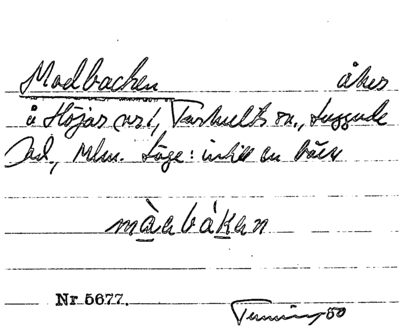 Madbacken åker
å Höjas nr 1, Farhults sn., Luggude
hd., Mlm. Läge: intill en bäck
màabáken
Nr 5677.
50